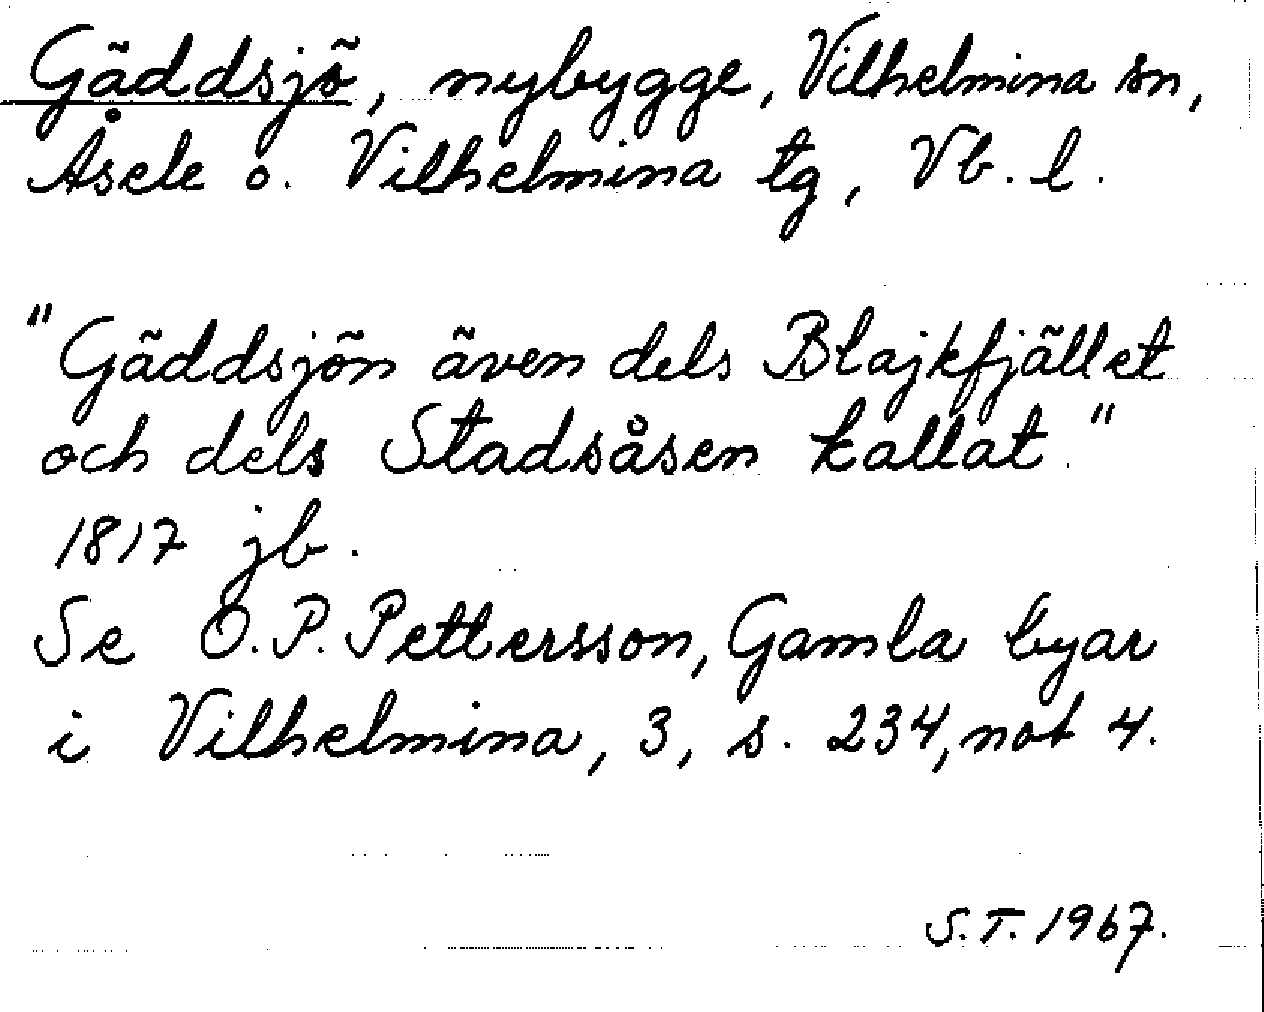 Gäddsjö, nybygge, Vilhelmina sn,
Åsele o. Vilhelmina tg, Vb. l.
"Gäddsjön även dels Blajkfjället
och dels Stadsåsen kallat."
1817 jb.
Se O.P. Pettersson, Gamla byar
i Vilhelmina, 3, s. 234, not 4.
S.T. 1967.